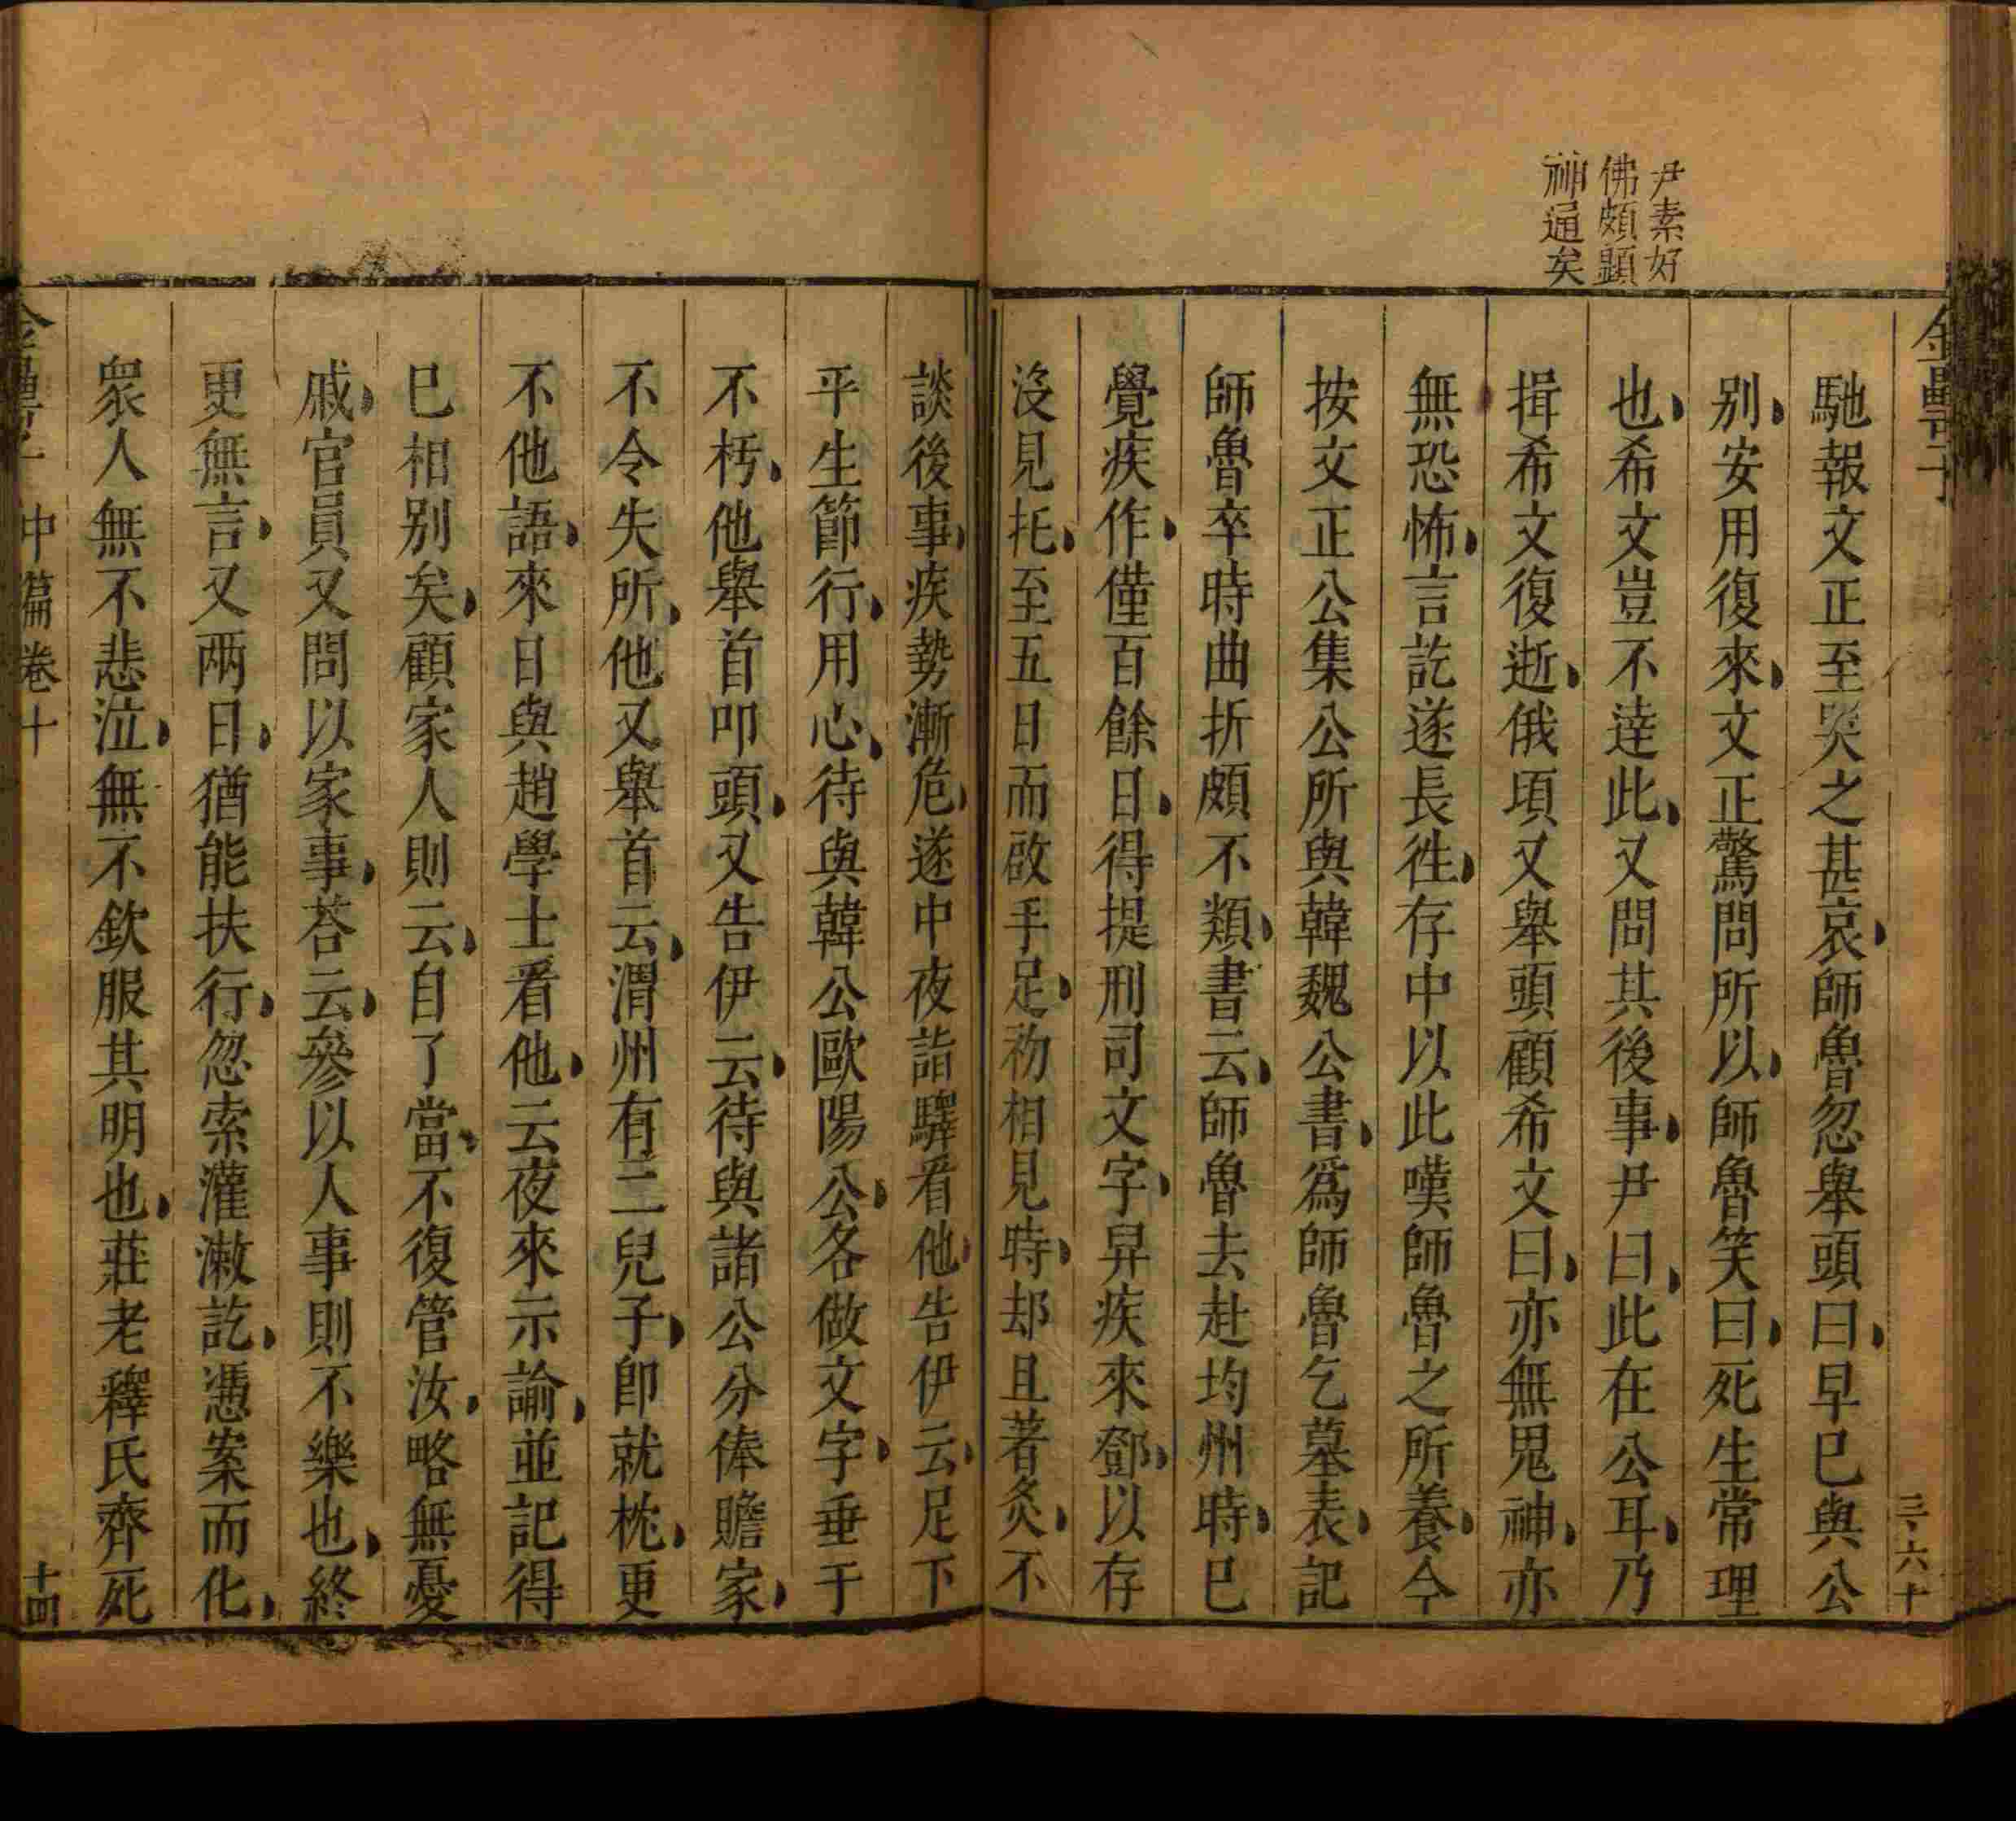 尹素好
佛頗顯
神通矣
馳報文正至哭之甚哀師魯忽舉頭曰早巳與公
别安用復來文正驚問所以師魯笑曰死生常理
也希文豈不逹此又問其後事尹曰此在公耳乃
揖希文復逝俄頃又舉頭顧希文曰亦無鬼神亦
無恐怖言訖遂長徃存中以此嘆師魯之所養今
按文正公集公所與韓魏公書爲師魯乞墓表記
師魯卒時曲折頗不類書云師魯去赴均州時巳
覺疾作僅百餘日得提刑司文字舁疾來鄧以存
沒見托至五日而啟手足初相見時却且著灸不
談後事疾勢漸危遂中夜詣驛看他告伊云足下
平生節行用心待與韓公歐陽公各做文字垂于
不朽他舉首叩頭又告伊云待與諸公分俸贍家
不令失所他又舉首云渭州有二兒子卽就枕更
不他語來日與趙學士看他云夜來示諭並記得
巳相别矣顧家人則云自了當不復管汝略無憂
戚官員又問以家事荅云參以人事則不樂也終
更無言又兩日猶能扶行忽索灌漱訖憑案而化
衆人無不悲泣無不欽服其明也莊老釋氏齊死
中篇卷十
十四